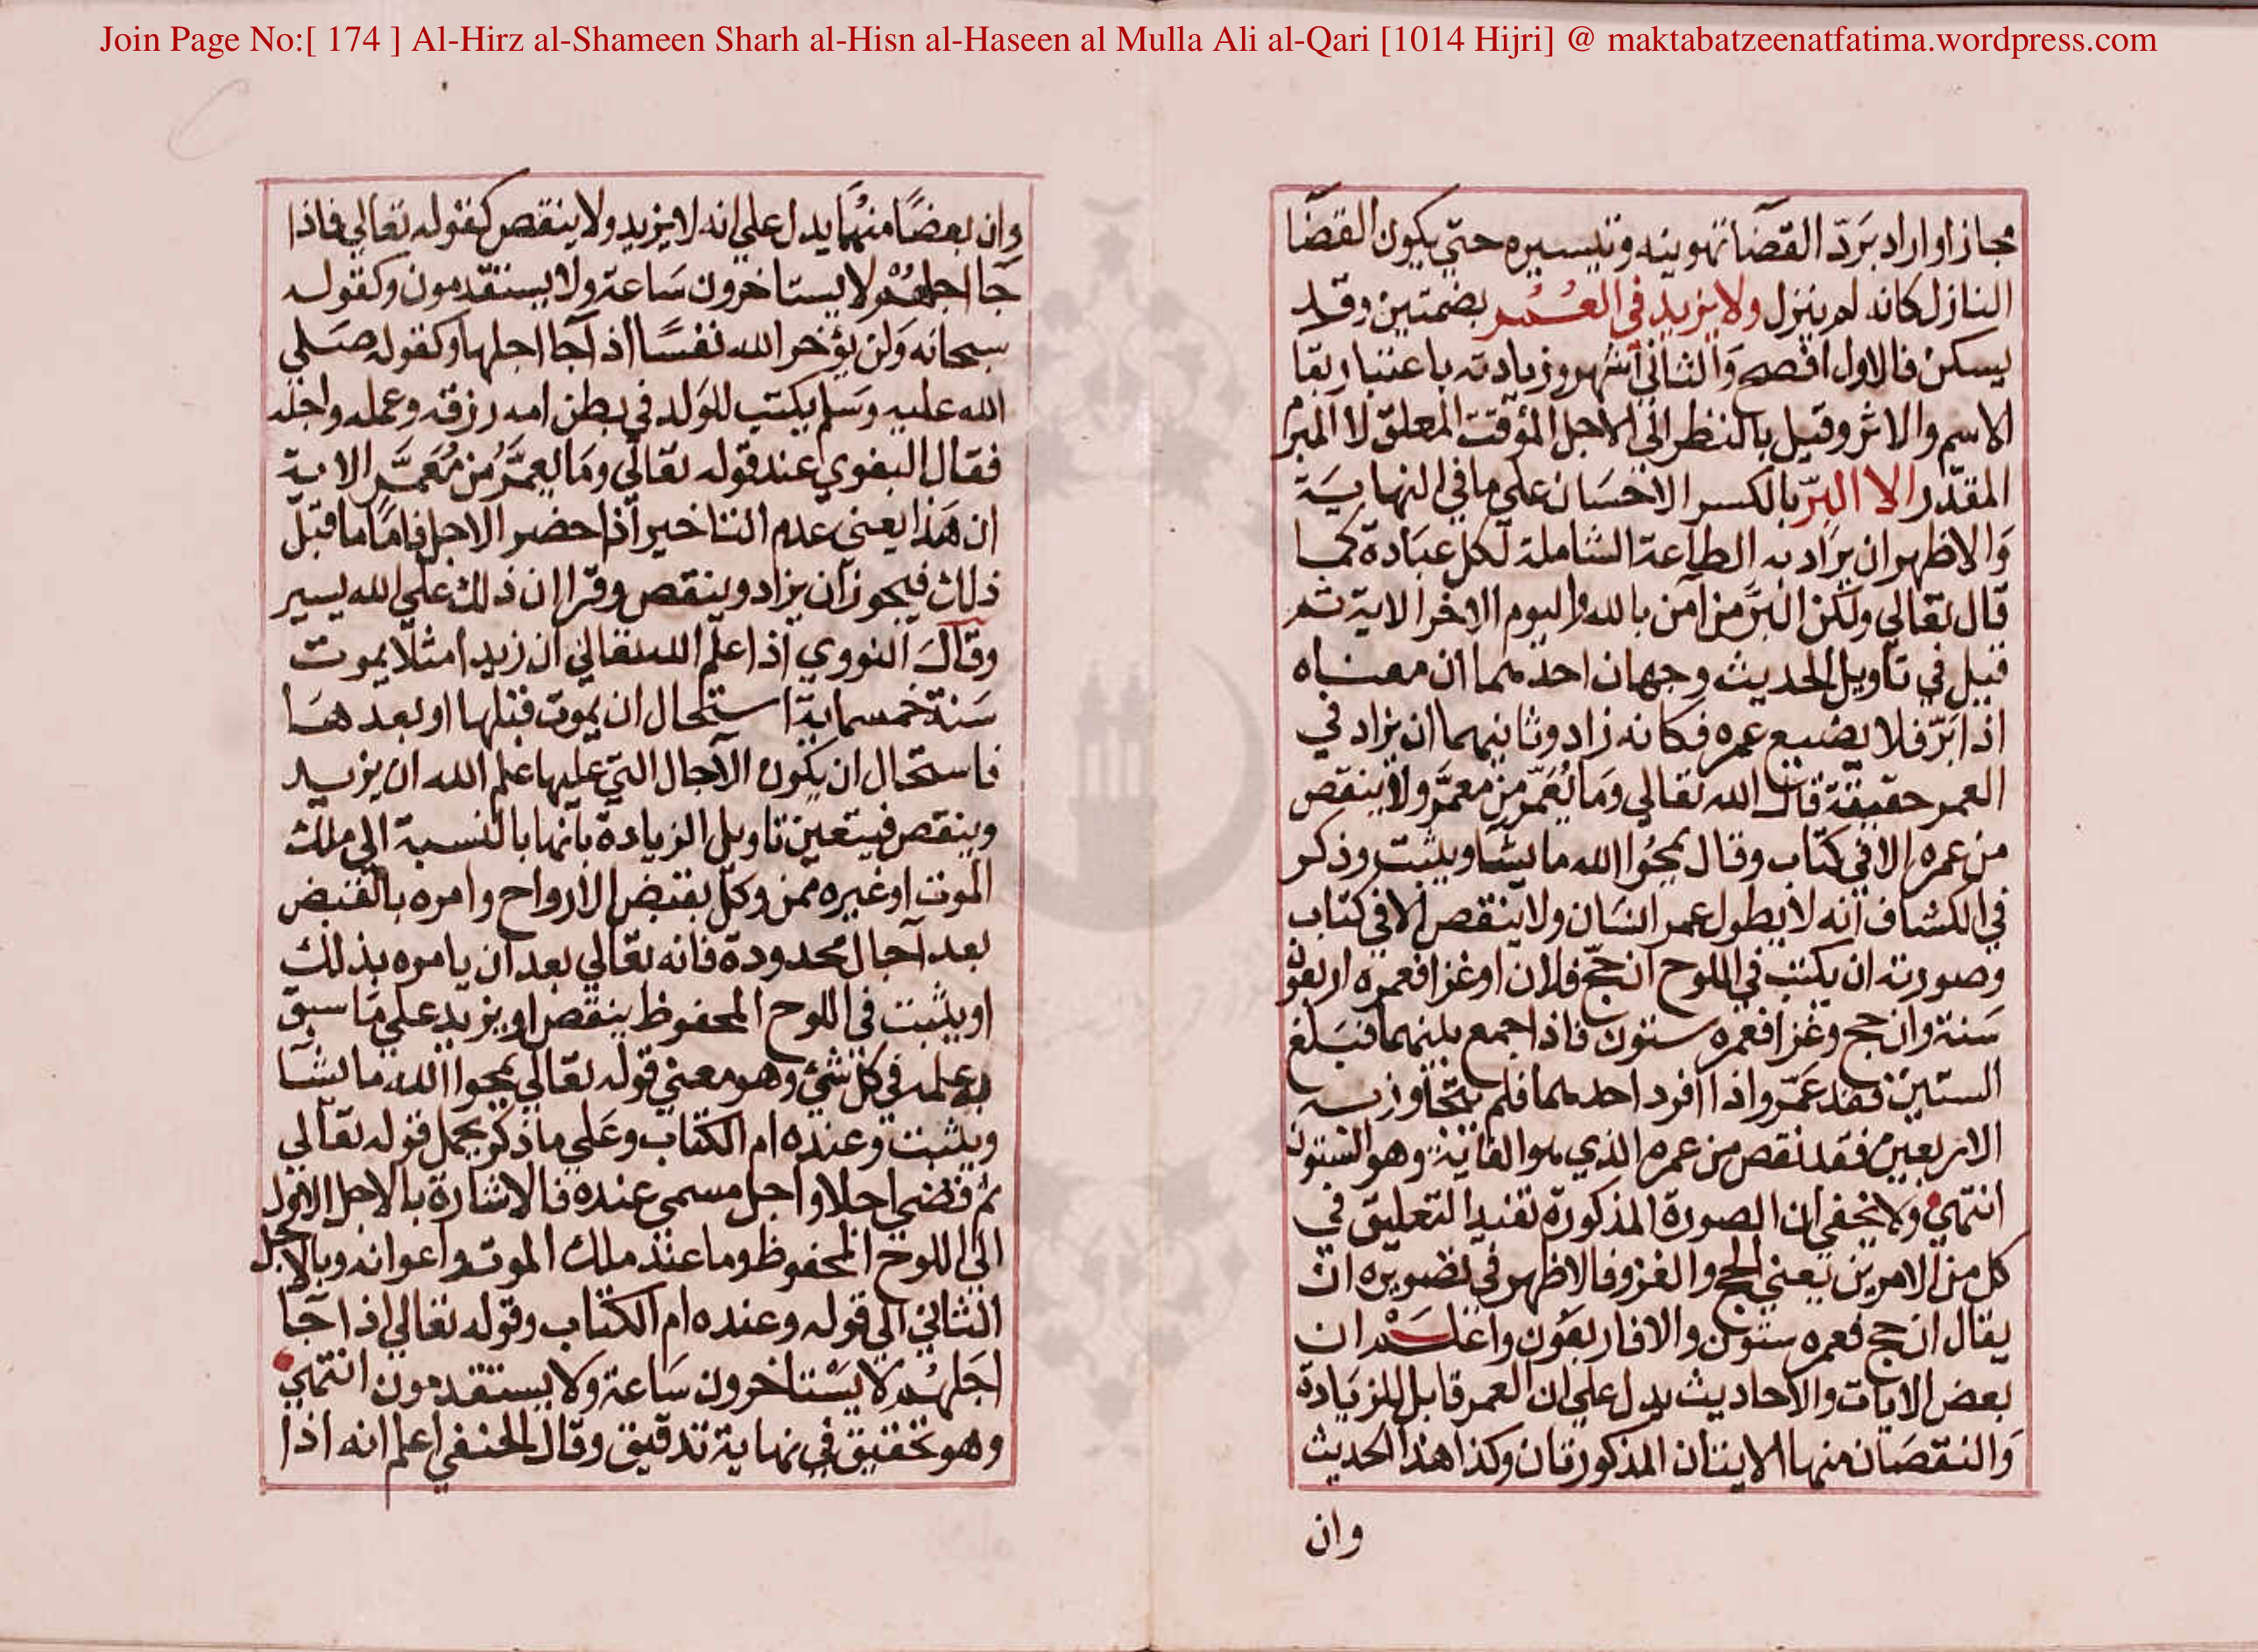 Join Page No:[ 174 ] Al-Hirz al-Shameen Sharh al-Hisn al-Haseen al Mulla Ali al-Qari [1014 Hijri] @ maktabatzeenatfatima.wordpress.com
مجاز او اراد بَردّ القضآ تهوينه وتيسيره حتي يكون القضَا
النازل كانه لم ينزل ولا يزيد في العُمُر بضمتين وقد
يسكن فالاول افصح وَالثاني اشهر وزيادته باعتبار بقا
الاسم والاثر وقيل بالنظر الي الاجل المؤقت المعلق لا المبرم
المقدّر الا البِرّ بالكسر الاحسَان علي ما في النهايَة
وَالاظهر ان يرَاد به الطاعة الشاملة لكل عبَادة كما
قال تعالي ولكن البرَّ من آمن بالله واليوم الاخر الاية ثم
قيل في تاويل الحديث وجهان احدهما ان معناه
اذا برّ فلا يضيع عمره فكانه زاد وثانيهما ان يزاد في
العمر حقيقة قال الله تعالي وَما يُعَمّر من معمَّر ولا ينقص
من عمره الا في كتاب وقال يمحُوا الله ما يشا ويثبت وذكر
في الكشاف انه لا يطول عمر انسَان ولا ينقص الا في كتاب
وصورته ان يكتب في اللوح ان حج فلان او غزا فعمره اربعون
سَنة وان حج وغزا فعمره ستون فاذا جمع بينهما فبَلغ
الستين فقد عَمّر واذا افرد احدهما فلم يتجاوز به
الاربعين فقد نقص من عمره الذي هو الغاية وهو الستون
انتهي ولا يخفي ان الصورة المذكورة تفيد التعليق في
كل من الامرين يعني الحج والغزو فالاظهر في تصويره ان
يقال ان حج فعمره ستون والا فاربعون واعلَمْ ان
بعض الايات والاحاديث يدل علي ان العمر قابل للزيَادة
وَالنقصَان منها الايتان المذكورتان وكذا هذا الحديث
وان
وان بعضًا منهما يدل علي انه لا يزيد ولا ينقص كقوله تعالي فاذا
جَا اجلهُمْ لا يستاخرون سَاعة ولا يستقدمون وكقوله
سبحانه وَلن يؤخر الله نفسًا اذا جا اجلها وكقوله صَلي
الله عليه وسَلم يكتب للوَلد في بطن امه رزقه وعمله واجله
فقال البغوي عند قوله تعالي ومَا يعمَّرُ من مُعَمَّر الاية
ان هَذا يعني عدم التاخير اذا حضر الاجل فامّا ما قبل
ذلك فيجوز ان يزاد وينقص وقرا ان ذلك علي الله يسير
وقال النووي اذا علم الله تعالي ان زيدا مثلا يموت
سَنة خمسماية استحال ان يموت قبلها او بعدهَا
فاستحال ان يكون الآجال التي عليها علم الله ان يزيد
وينقص فيتعين تاويل الزيادة بانها بالنسبة الي ملك
الموت او غيره ممن وكل بقبض الارواح وامره بالقبض
بعد آجال محدودة فانه تعالي بعد ان يامره بذلك
او يثبت في اللوح المحفوظ ينقص او يزيد علي مَا سبق
به علمه في كل شئ وهو معني قوله تعالي يمحوا الله ما يشا
ويثبت وعنده ام الكتاب وعَلي ما ذكر يحمل قوله تعالي
ثم قضي اجلا واجل مسمي عنده فالاشارة بالاجل الاول
الي اللوح المحفوظ وما عند ملك الموت واعوانه وبالاجل
الثاني الي قوله وعنده ام الكتاب وقوله تعالي اذا جَا
اجَلهُم لا يسْتاخرون سَاعة ولا يستقدمون انتهي
وهو تحقيق في نهاية تدقيق وقال الحنفي اعلم انه اذا